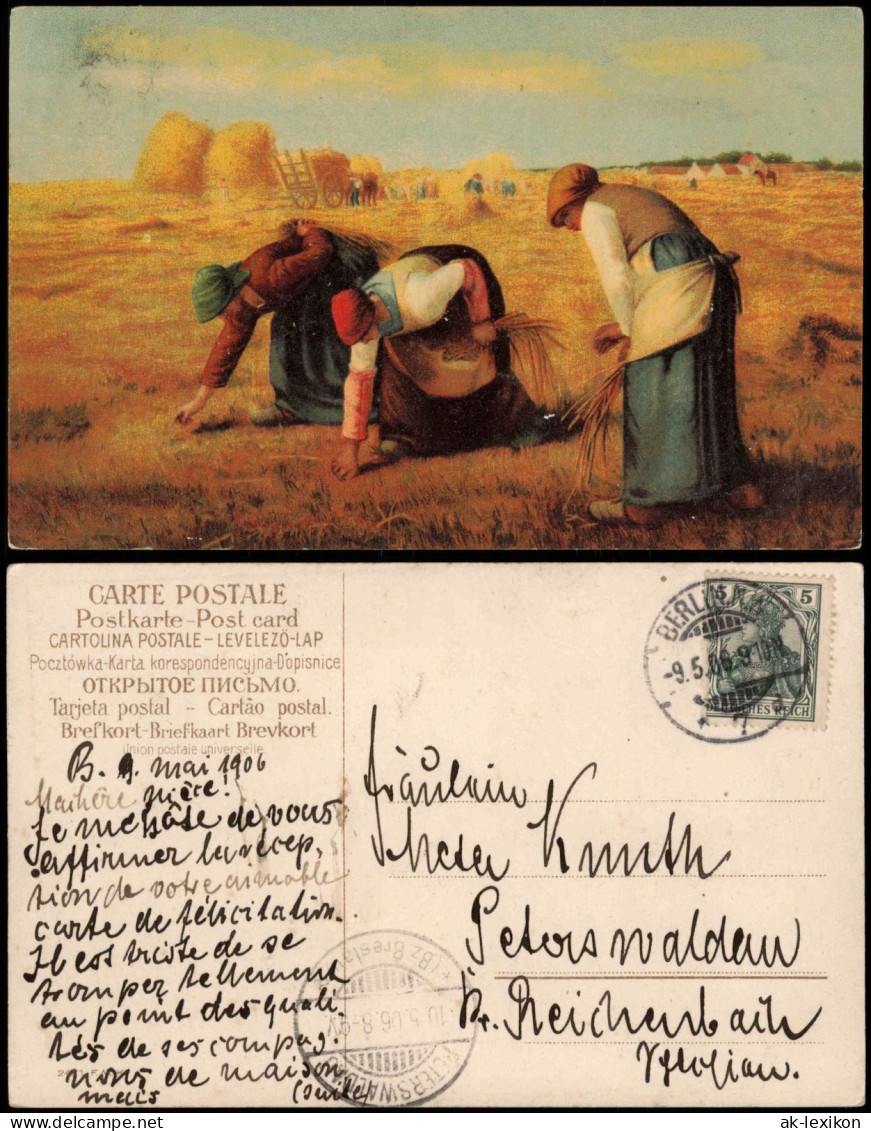 CARTE POSTALE
Postkarte-Post card
CARTOLINA POSTALE-LEVELEZÖ-LAP
Pocztówka-Karta korespondencyjna-Dopisnice
ОТКРЫТОЕ ПИСЬМО.
Tarjeta postal - Cartão postal.
Brefkort-Briefkaart Brevkort
Union postale universelle
B. 9. mai 1906
nièce!
Je me hâte de vous
affirmer la récep,
tion de votre aimable
carte de félicitation.
Il est triste de se
tromper tellement
au point des quali,
tés de ses compag,
nons de maison
mais (suite)
BERLIN
-9.5.06.9-10
7
5
5
DEUTSCHES REICH
Fräulein
Meta Knuth
Peterswaldau
Kr. Reichenbach
(Bz Bresla
10.5.06.8-9V
PETERSWALDAU
ak-lexikon
delcampe.net